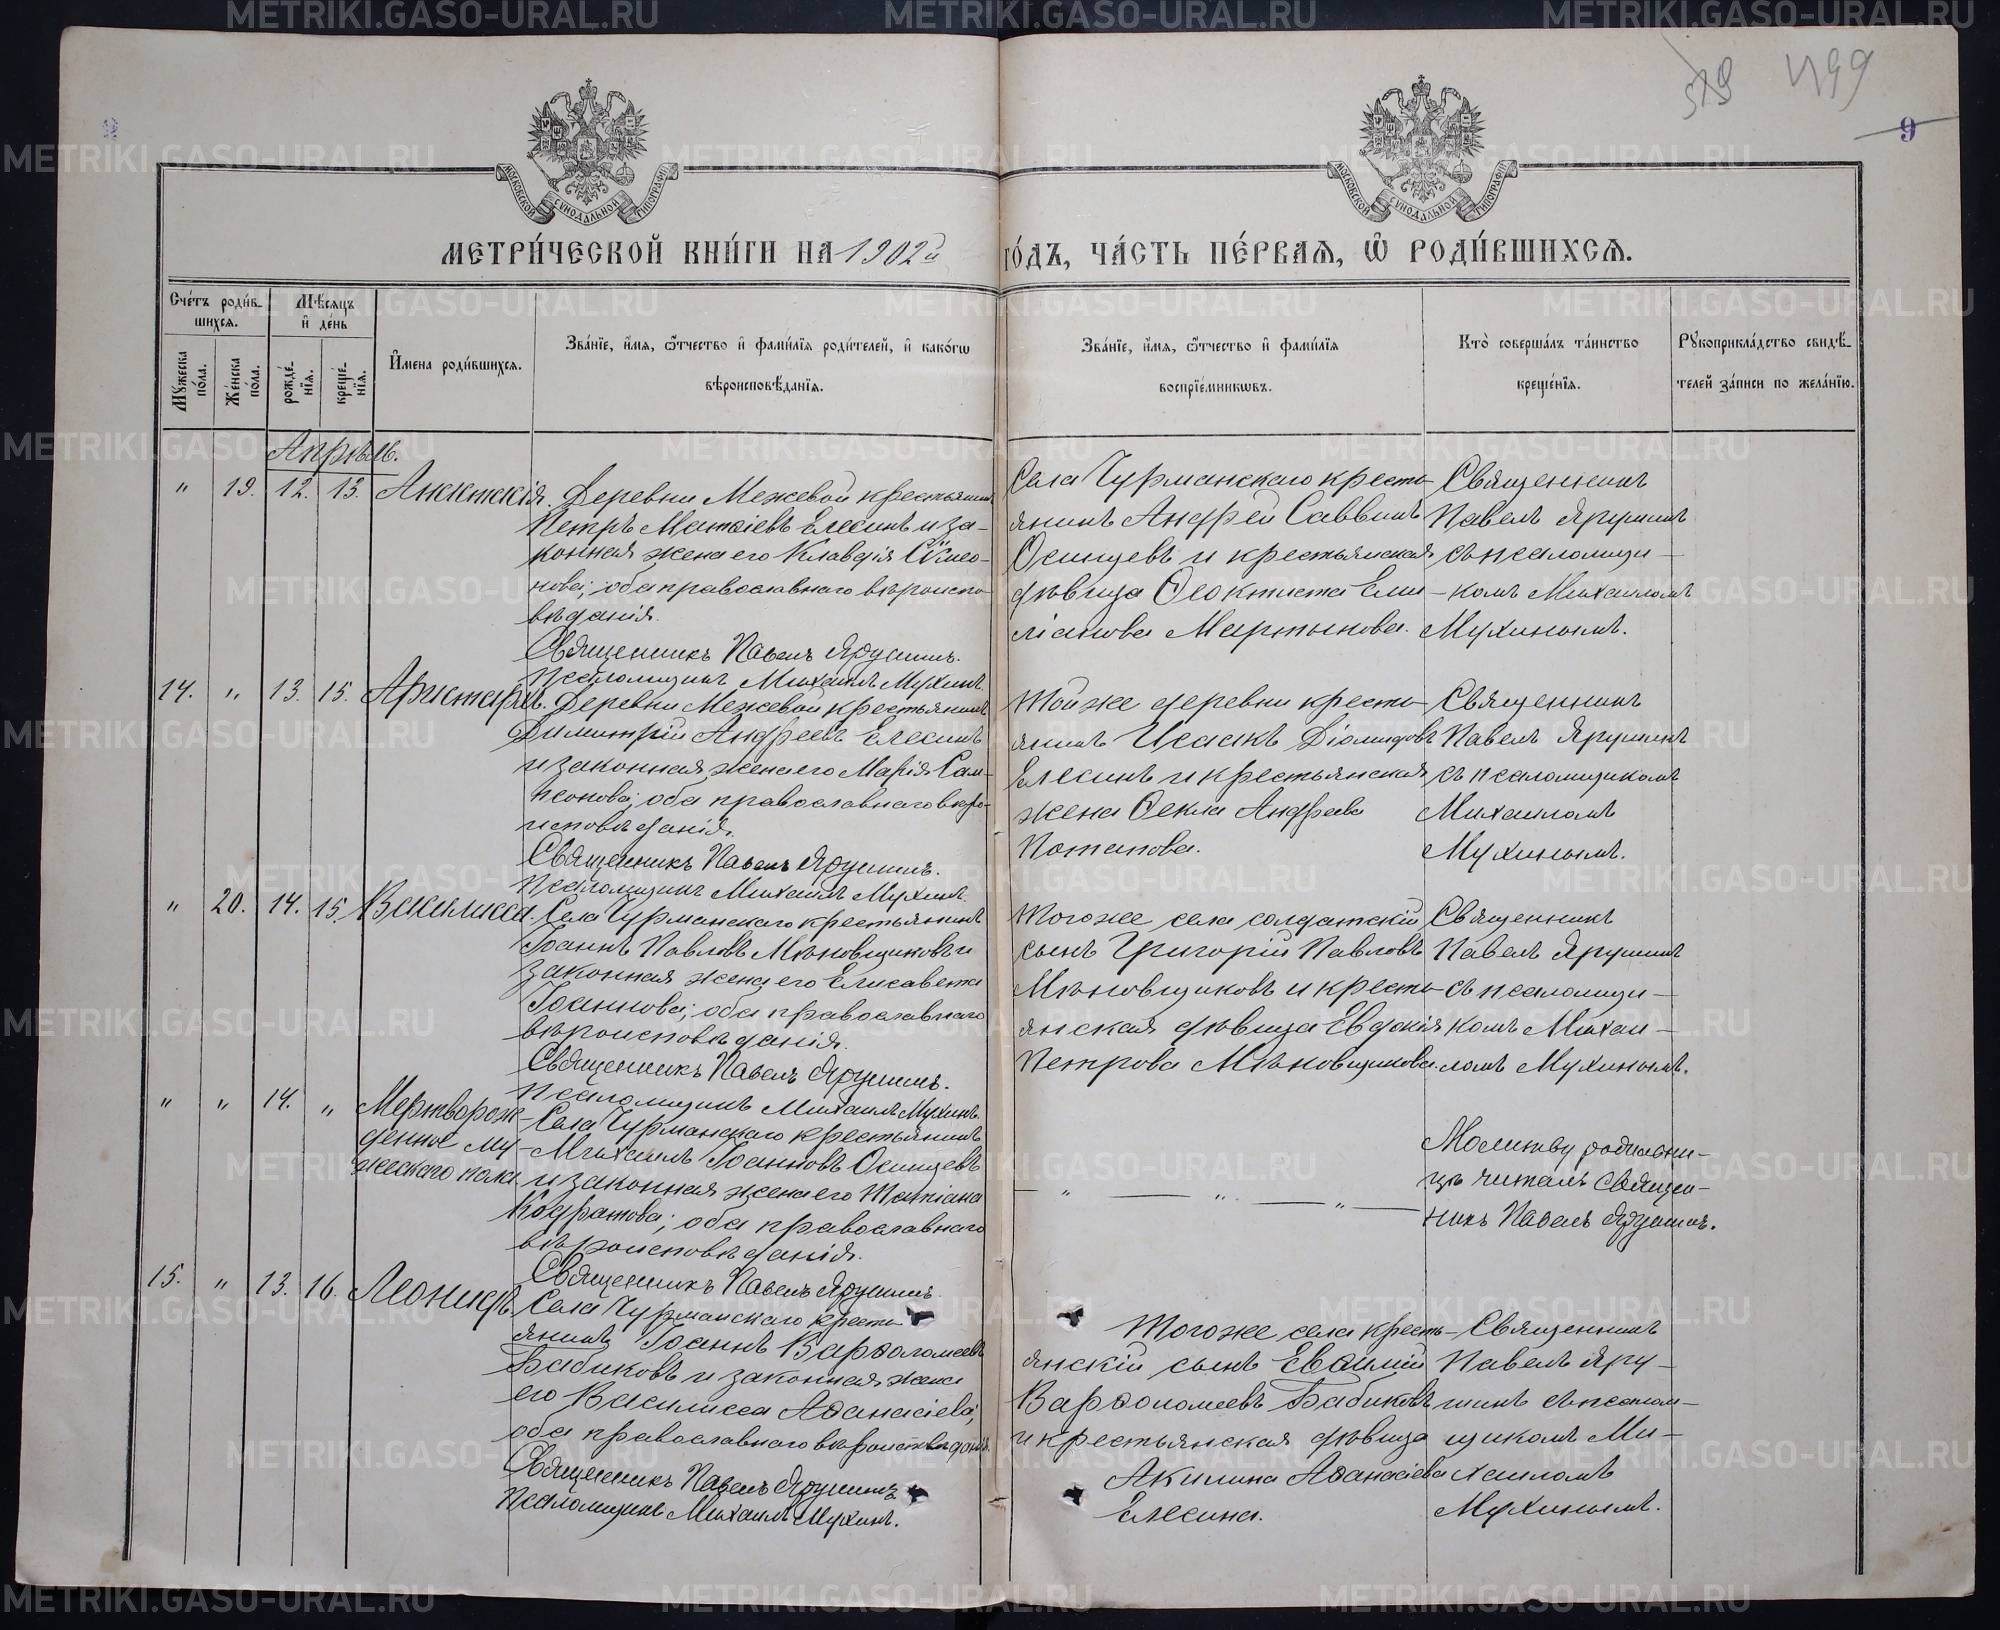 519 499
9
МОСКОВСКОЙ СѴНОДАЛЬНОЙ ТИПОГРАФІИ
МОСКОВСКОЙ СѴНОДАЛЬНОЙ ТИПОГРАФІИ
МЕТРИ́ЧЕСКОЙ КНИ́ГИ НА 1902й ГО́ДЪ, ЧА́СТЬ ПЕ́РВАЯ, Ѽ РОДИ́ВШИХСЯ.
Сче́тъ роди́вшихся.
Мꙋ́жеска по́ла.
Же́нска по́ла.
Мѣ́сяцъ и҆ де́нь
рожде́нїя.
креще́нїя.
И҆мена роди́вшихся.
Зва́нїе, и҆́мя, ѻ҆́тчество и҆ фами́лїя роди́телей, и҆ како́гѡ вѣроисповѣ́данїя.
Зва́нїе, и҆́мя, ѻ҆́тчество и҆ фами́лїя воспрїе́мникѡвъ.
Кто̀ соверша́лъ та́инство креще́нїя.
Рꙋкоприкла́дство свидѣ́телей за́писи по жела́нїю.
Апрѣль.
" 19. 12. 13. Анектскія.
Деревни Межевой крестьянинъ
Петръ Матѳіевъ Елесинъ и за-
конная жена его Клавдія Сѵмео-
нова; оба православнаго вѣроиспо-
вѣданія.
Священникъ Павелъ Ярушинъ.
Псаломщикъ Михаилъ Мухинъ.
Села Чурманскаго кресть-
янинъ Андрей Саввинъ
Осинцевъ и крестьянская
дѣвица Ѳеоктиста Еми-
ліанова Мартынова.
Священникъ
Павелъ Ярушинъ
съ псаломщи-
комъ Михаиломъ
Мухинымъ.
14. " 13. 15. Аристархъ.
Деревни Межевой крестьянинъ
Димитрій Андреевъ Елесинъ
и законная жена его Марія Сам-
псонова; оба православнаго вѣро-
исповѣданія.
Священникъ Павелъ Ярушинъ.
Псаломщикъ Михаилъ Мухинъ.
Той же деревни кресть-
янинъ Исаакъ Діомидовъ
Елесинъ и крестьянская
жена Ѳекла Андреева
Потапова.
Священникъ
Павелъ Ярушинъ
съ псаломщикомъ
Михаиломъ
Мухинымъ.
" 20. 14. 15. Василисса.
Села Чурманскаго крестьянинъ
Іоаннъ Павловъ Мѣновщиковъ и
законная жена его Елисавета
Іоаннова; оба православнаго
вѣроисповѣданія.
Священникъ Павелъ Ярушинъ.
Псаломщикъ Михаилъ Мухинъ.
Того же села солдатскій
сынъ Григорій Павловъ
Мѣновщиковъ и кресть-
янская дѣвица Евдокія
Петрова Мѣновщикова.
Священникъ
Павелъ Ярушинъ
съ псаломщи-
комъ Михаи-
ломъ Мухинымъ.
" " 14. " Мертворож-
денное му-
жескаго пола
Села Чурманскаго крестьянинъ
Михаилъ Іоанновъ Осинцевъ
и законная жена его Татіана
Кодратова; оба православнаго
вѣроисповѣданія.
Священникъ Павелъ Ярушинъ.
— " — " — " —
Молитву родильни-
цѣ читалъ священ-
никъ Павелъ Ярушинъ.
15. " 13. 16. Леонидъ.
Села Чурманскаго кресть-
янинъ Іоаннъ Варѳоломеевъ
Бабиковъ и законная жена
его Василисса Аѳанасіева;
оба православнаго вѣроисповѣданія.
Священникъ Павелъ Ярушинъ
Псаломщикъ Михаилъ Мухинъ.
Того же села кресть-
янскій сынъ Евѳимій
Варѳоломеевъ Бабиковъ
и крестьянская дѣвица
Акилина Аѳанасіева
Елесина.
Священникъ
Павелъ Яру-
шинъ съ псалом-
щикомъ Ми-
хаиломъ
Мухинымъ.